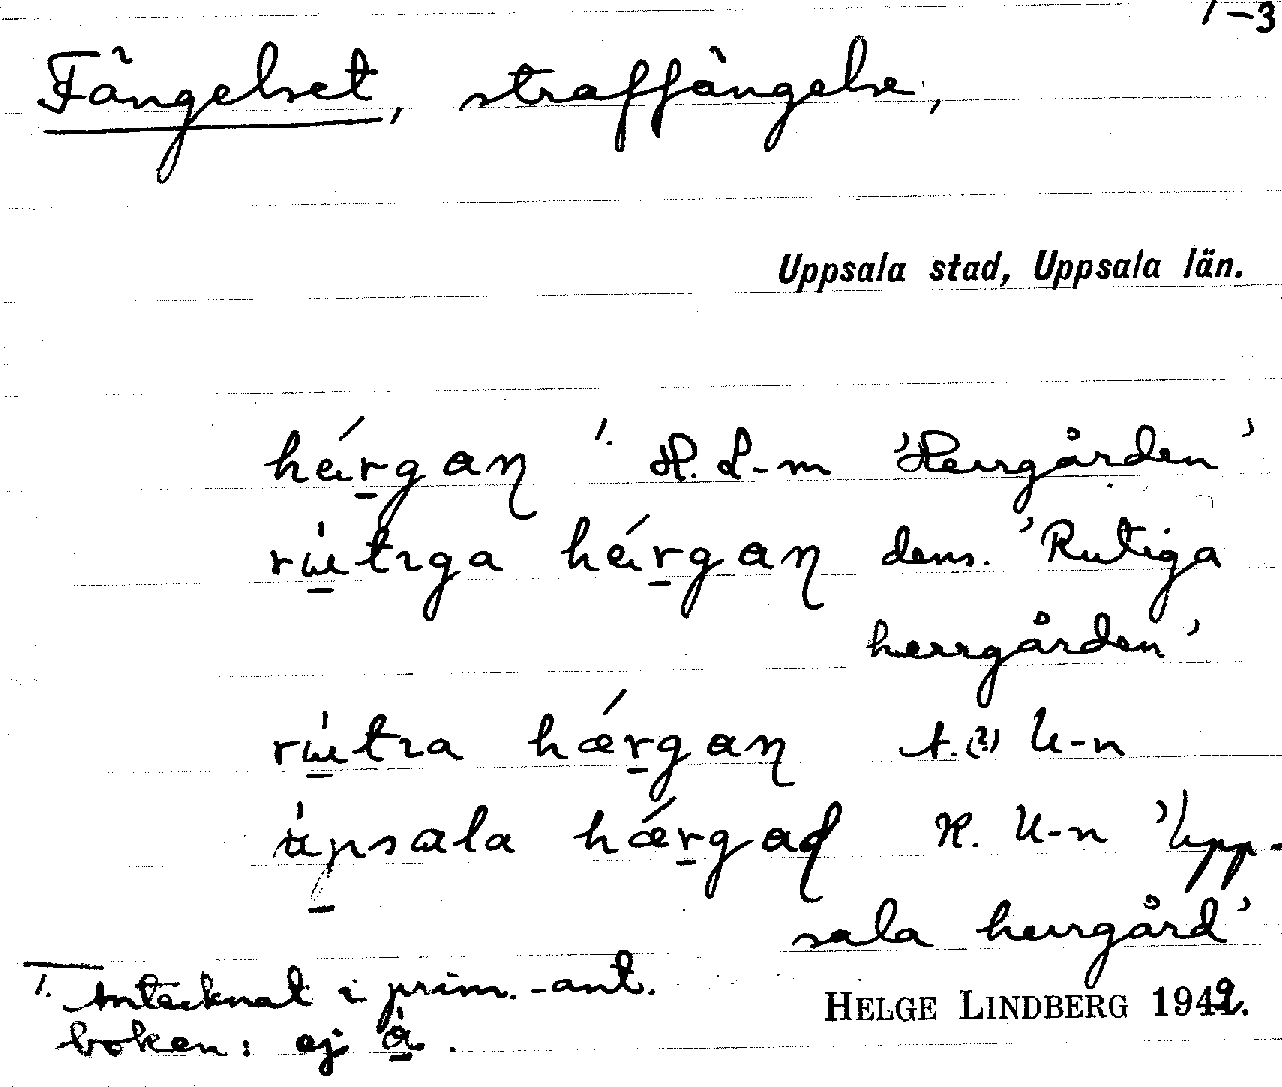 1-3
Fängelset, straffängelse,
Uppsala stad, Uppsala län.
hǽrgaɳ 1. H. L-m 'Herrgården'
rʉtiga hǽrgaɳ dens. 'Rutiga
herrgården'
rʉtia hǽrgaɳ A.(?) U-n
upsala hǽrgaɖ K. U-n 'Upp-
sala herrgård'
1. Antecknat i prim.-ant.
boken: ej a.
HELGE LINDBERG 1942.